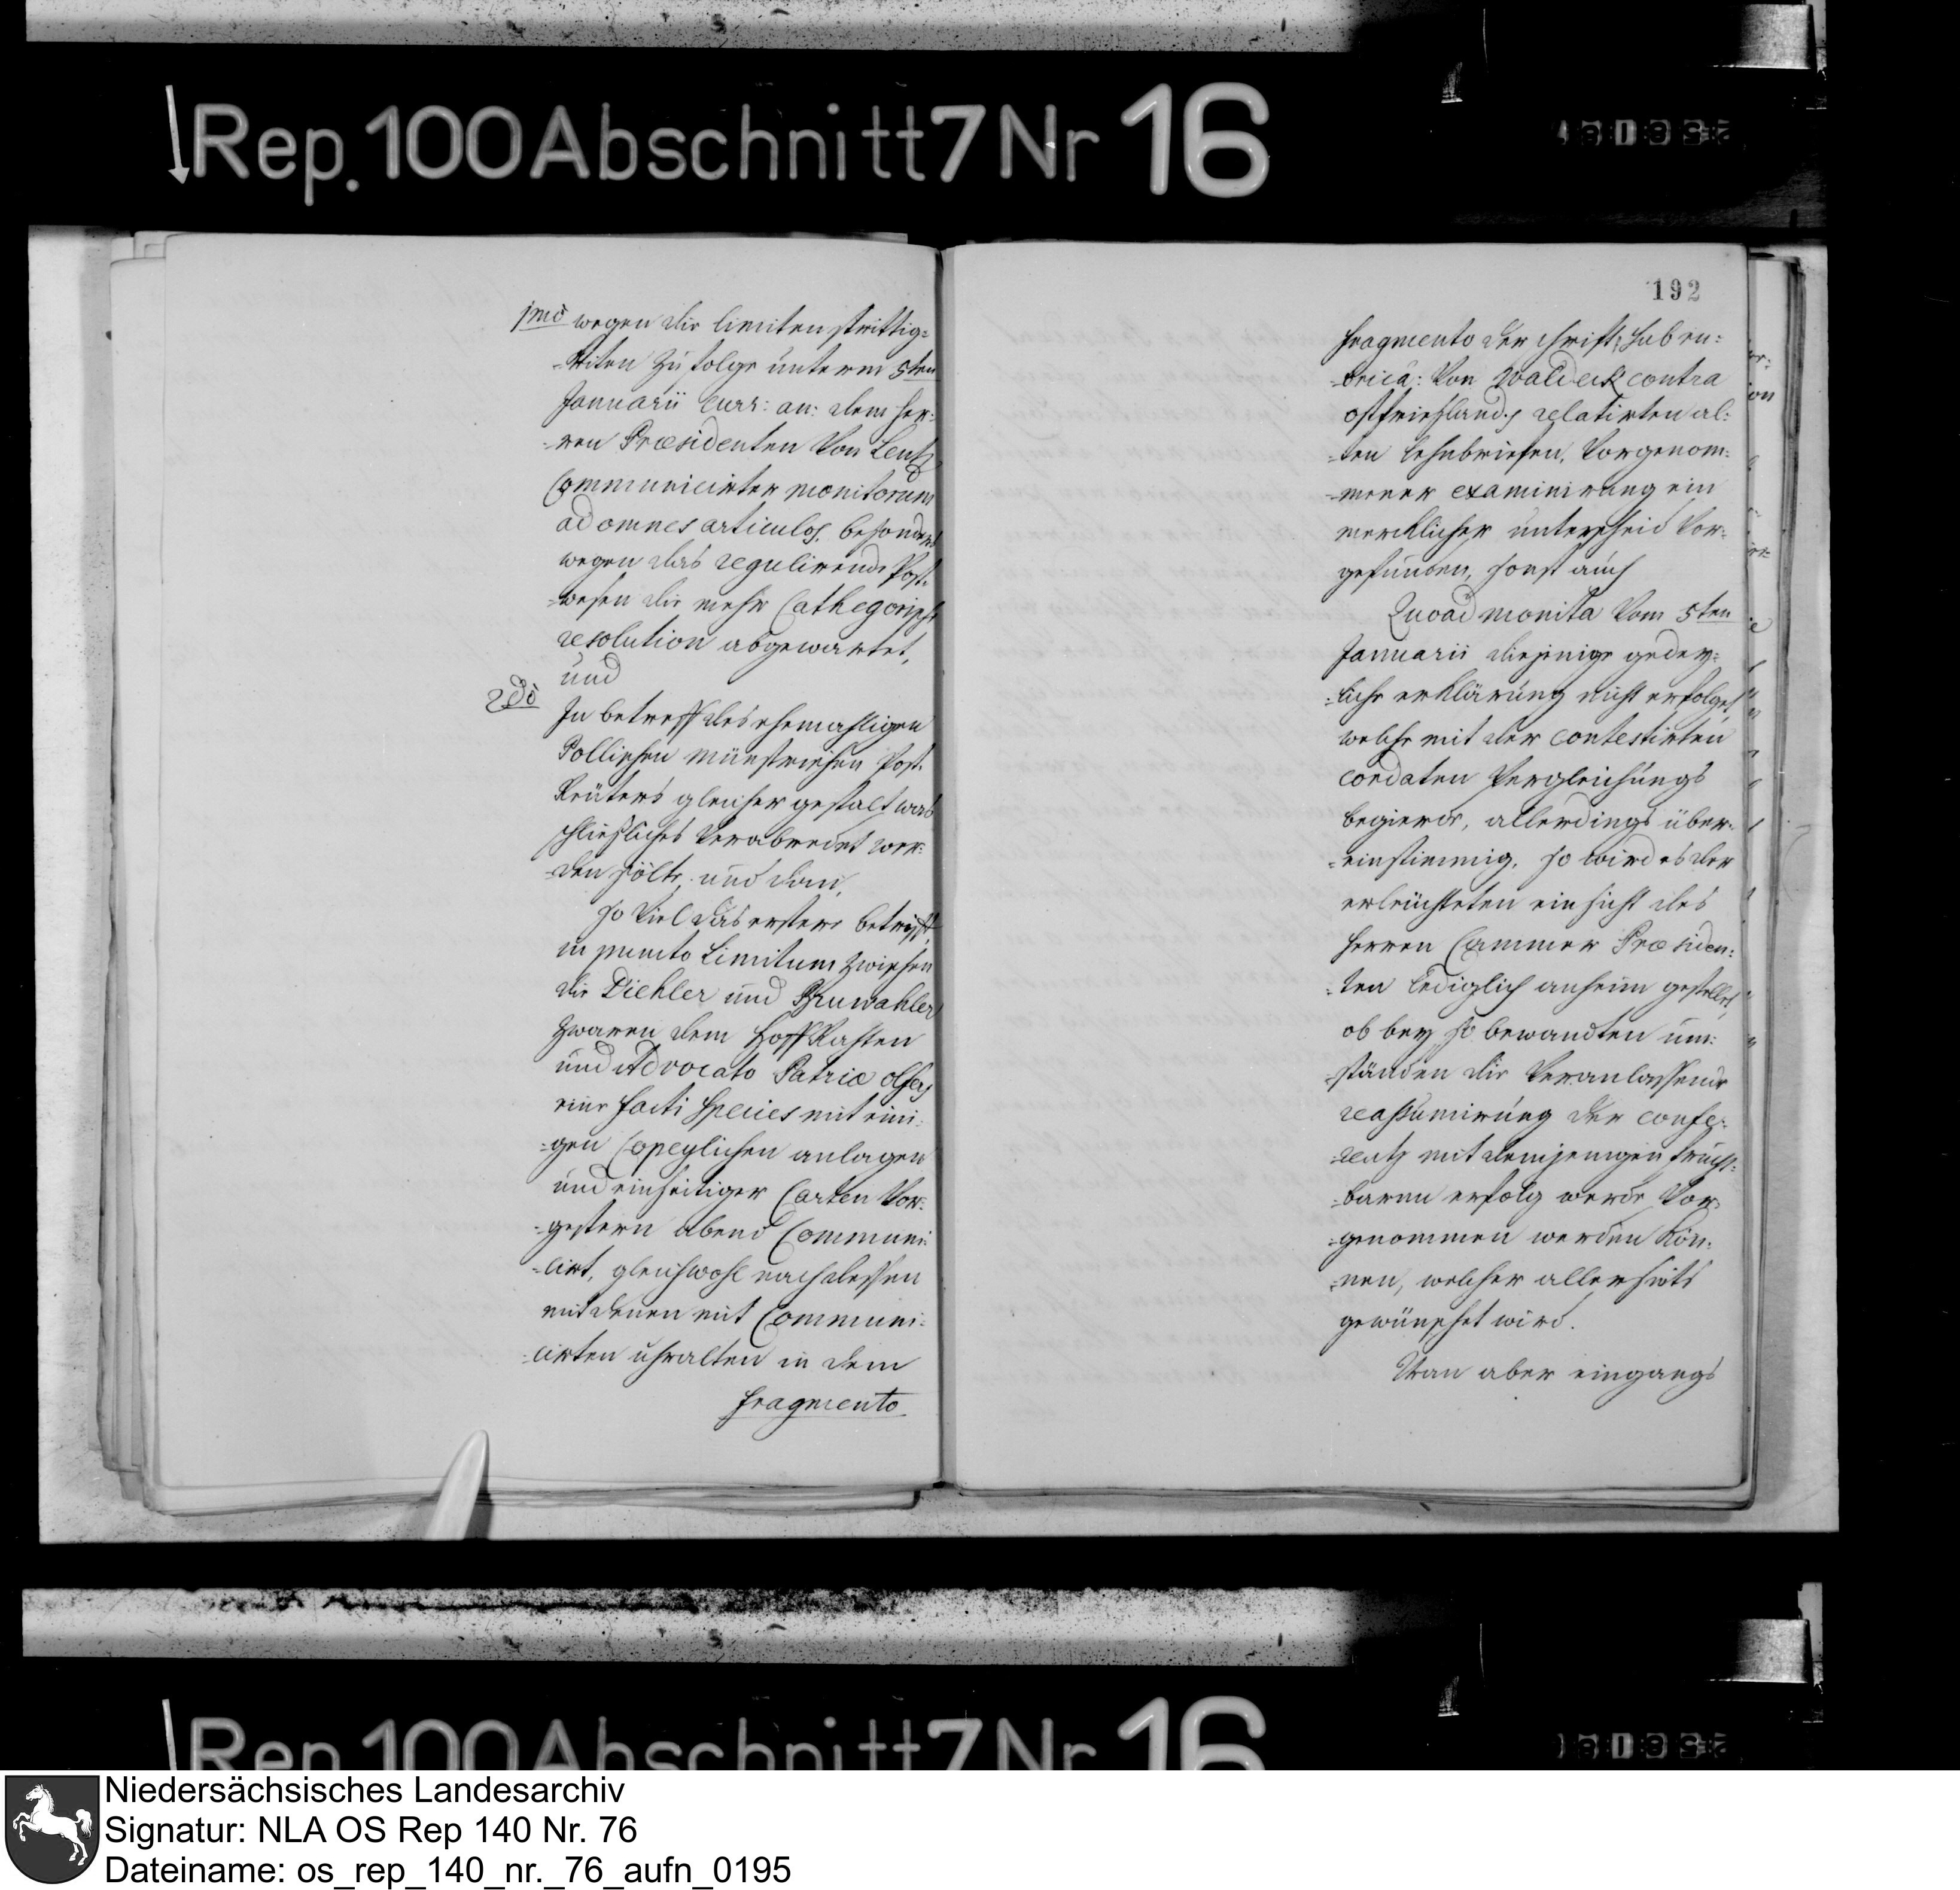 Rep. 100 Abschnitt 7 Nr 16
1mò wegen die limiten strittig=
=keiten zu folge unterm 5ten
Januarii curr: an: dem her=
=ren Præsidenten von Lentz
Communicirter monitorum
ad omnes articulos, besonders
wegen das regulirende Post=
=wesen die mehr Cathegorische
resolution abgewartet,
und
2dò
In betreff des ehemahligen
Pollischen münstrischen Post=
Reüters gleicher gestalt was
schließliches verabredet wer=
=den sölte, und dan,
so viel das erstere betrifft,
in puncto Limitum zwischen
die Diehler und
zwaren dem Hoff Kasten
und Advocato Patriæ
eine facti species mit eini=
=gen Copeylichen anlagen
und einseitiger Carten vor=
=gestern abend Communi=
=cirt, gleichwohl nach dessen
mit denen mit Communi=
=cirten uhralten in dem
fragmento
192
fragmento der schrift, sub ru=
=brica: von Waldeck contra
ostfrießland, relatirten al=
=ten lehnbriefen, vorgenom=
=mener examinirung ein
mercklicher unterscheid vor=
gefunden, sonst auch
Quoad monita vom 5ten
Januarii diejenige gedey=
=liche erklärung nicht erfolget,
welche mit der contestirten
cordaten vergleichungs
begierde, allerdings über=
=einstimmig, so wird es der
erleuchteten einsicht des
herren Cammer Præsiden=
=ten lediglich anheim gestellet,
ob bey so bewandten um=
=ständen die veranlassende
reassumirung der confe=
=rentz mit demjenigen frucht=
=baren erfolg werde vor=
=genommen werden kön=
=nen, welcher allerseits
gewünschet wird.
Wan aber eingangs
Rep. 100 Abschnitt 7 Nr 16
Niedersächsisches Landesarchiv
Signatur: NLA OS Rep 140 Nr. 76
Dateiname: os_rep_140_nr._76_aufn_0195